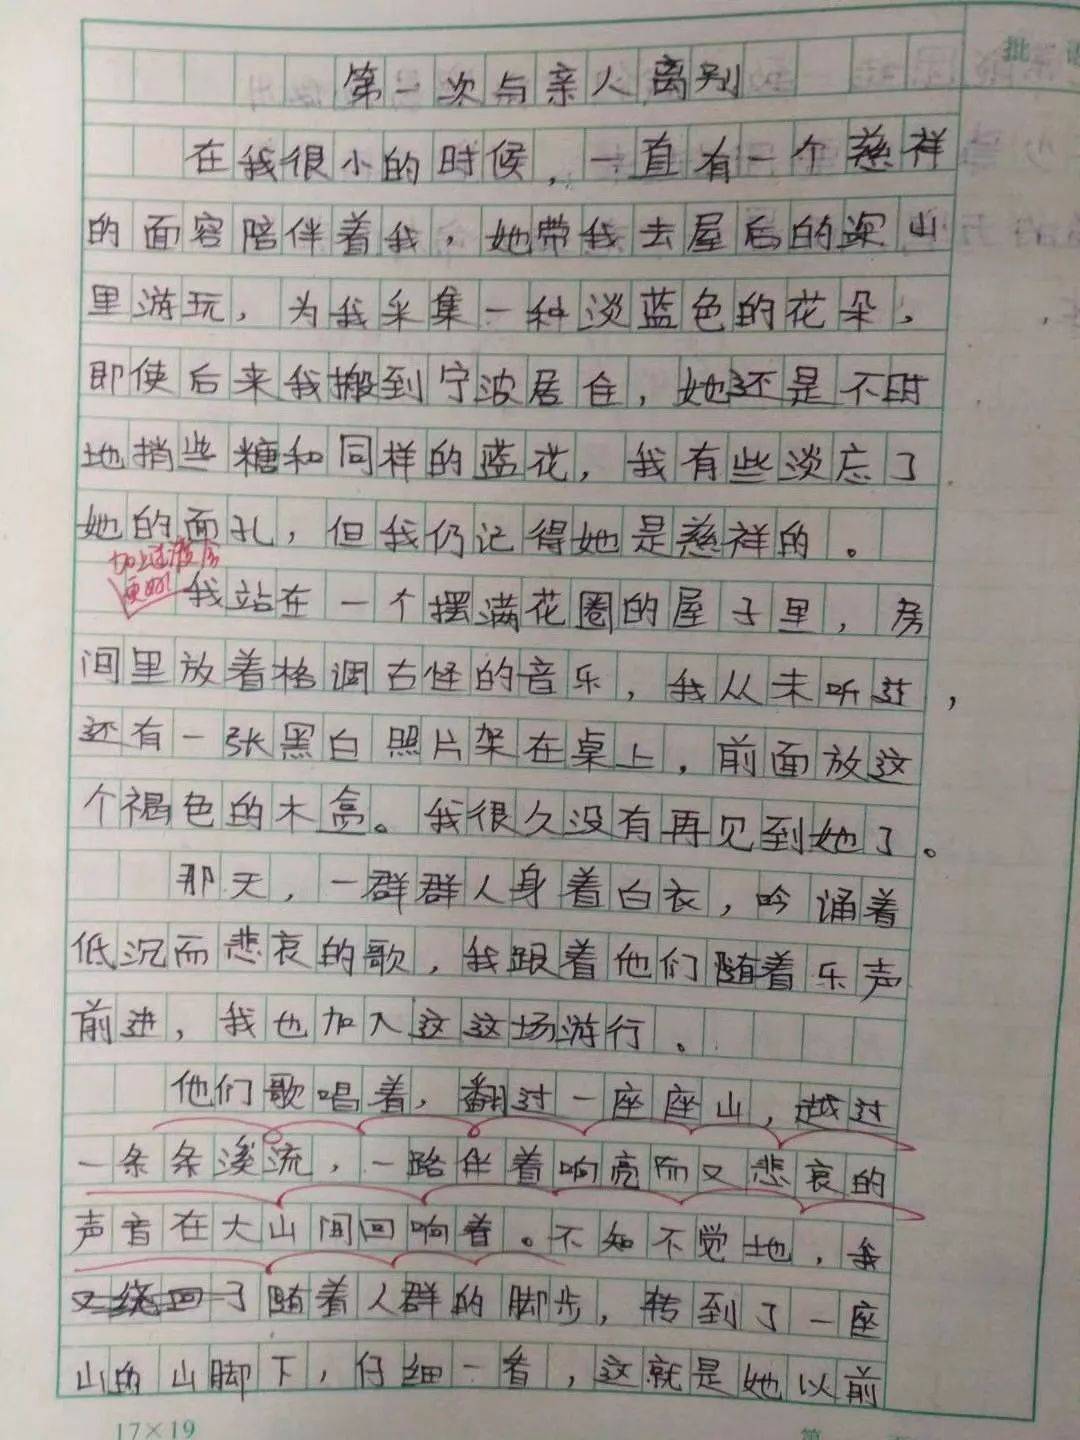 批
第一次与亲人离别
在我很小的时候，一直有一个慈祥
的面容陪伴着我，她带我去屋后的深山
里游玩，为我采集一种淡蓝色的花朵，
即使后来我搬到宁波居住，她还是不时
地捎些糖和同样的蓝花，我有些淡忘了
她的面孔，但我仍记得她是慈祥的。
加上过渡段
更好!
我站在一个摆满花圈的屋子里，房
间里放着格调古怪的音乐，我从未听过，
还有一张黑白照片架在桌上，前面放这
个褐色的木盒。我很久没有再见到她了。
那天，一群群人身着白衣，吟诵着
低沉而悲哀的歌，我跟着他们随着乐声
前进，我也加入这这场游行。
他们歌唱着，翻过一座座山，越过
一条条溪流，一路伴着响亮而又悲哀的
声音在大山间回响着。不知不觉地，我
随着人群的脚步，转到了一座
山的山脚下，仔细一看，这就是她以前
17×19
第